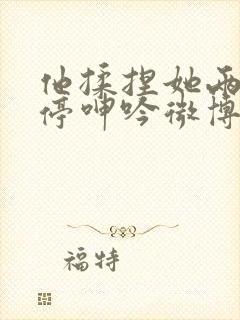 他揉捏她两
停呻吟微博
福特